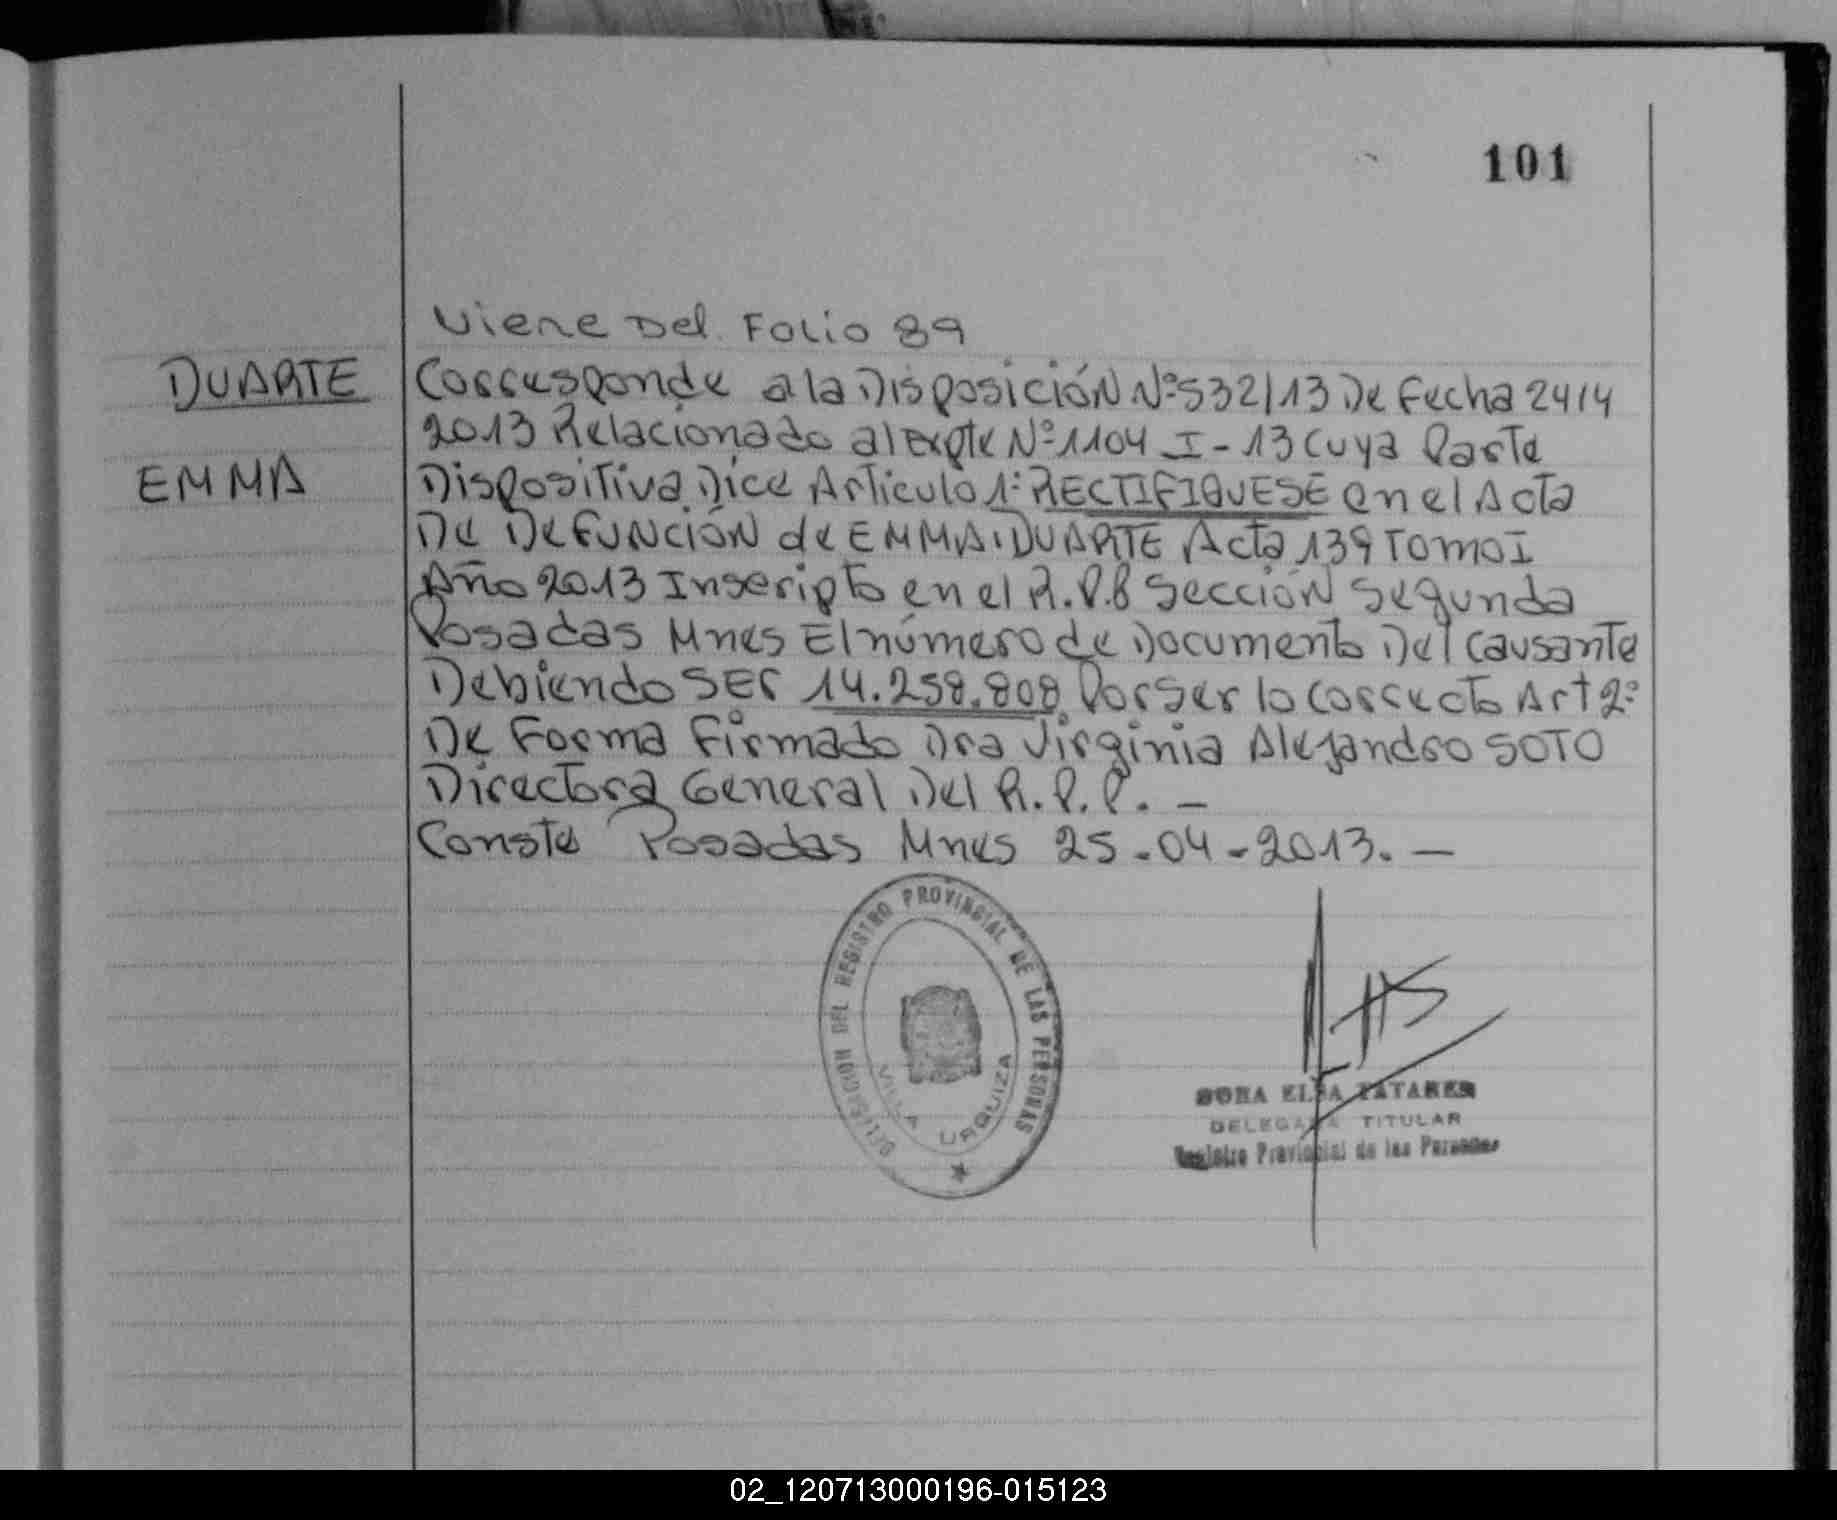 101
Viene Del. Folio 89
DUARTE
Corresponde a la Disposición Nº 532/13 De Fecha 24/4
2013 Relacionado al expte Nº 1104 I-13 cuya Parte
EMMA
Dispositiva Dice Articulo 1º RECTIFIQUESE en el Acta
De DeFunción de EMMA DUARTE Acta 139 Tomo I
Año 2013 Inscripto en el R.P.P Sección Segunda
Posadas Mnes El número de Documento Del Causante
Debiendo SER 14.258.808 Por Ser lo Correcto Art 2º
De Forma Firmado Dra Virginia Alejandro SOTO
Directora General Del R.P.P. –
Conste Posadas Mnes 25-04-2013. –
DELEGACION DEL REGISTRO PROVINCIAL DE LAS PERSONAS
VILLA URQUIZA
ELBA
DELEGADA TITULAR
Registro Provincial de las Personas
02_120713000196-015123